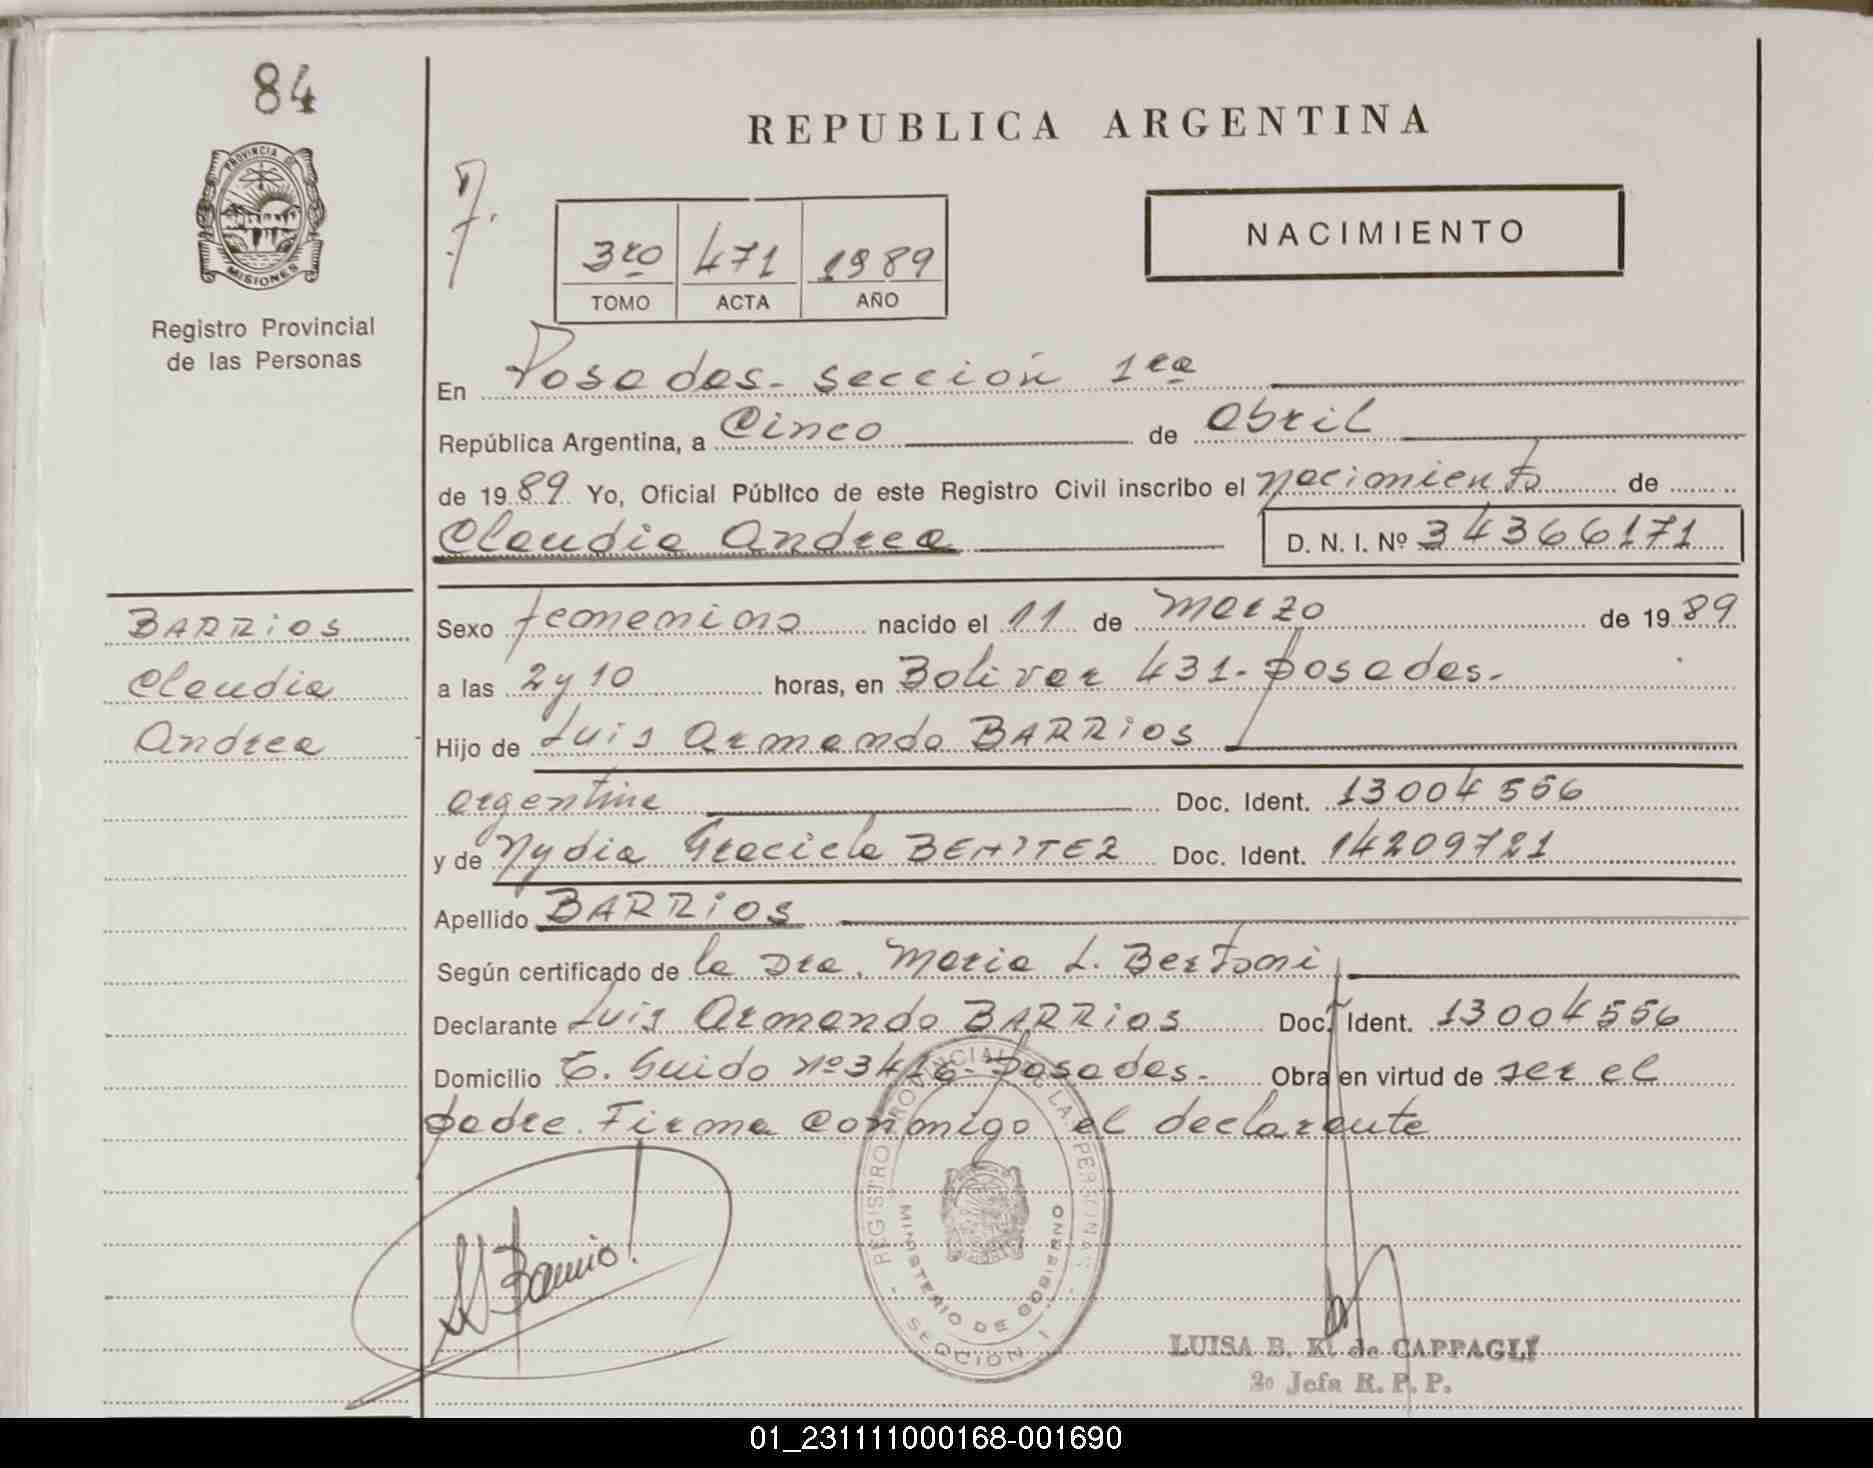 84
PROVINCIA DE
MISIONES
Registro Provincial
de las Personas
REPUBLICA ARGENTINA
F.
3ro 471 1989
TOMO ACTA AÑO
NACIMIENTO
En Posadas- sección 1ra
República Argentina, a Cinco de abril
de 1989 Yo, Oficial Público de este Registro Civil inscribo el nacimiento de
Claudia Andrea D. N. I. Nº 34366171
BARRiOS
Claudia
Andrea
Sexo femenino nacido el 11 de marzo de 1989
a las 2 y 10 horas, en Bolivar 431- posadas.
Hijo de Luis Armando BARRiOS
argentina Doc. Ident. 13004556
y de Nydia Graciela BENITEZ Doc. Ident. 14209721
Apellido BARRiOS
Según certificado de la Dra. Maria L. Bertoni
Declarante Luis Armando BARRiOS Doc. Ident. 13004556
Domicilio T. Guido nº 3416- posadas. Obra en virtud de ser el
padre. Firma conmigo el declarante
REGISTRO PROVINCIAL DE LAS PERSONAS
MINISTERIO DE GOBIERNO
SECCION 1
LUISA B. K. de CAPPAGLI
2º Jefa R. P. P.
01_231111000168-001690